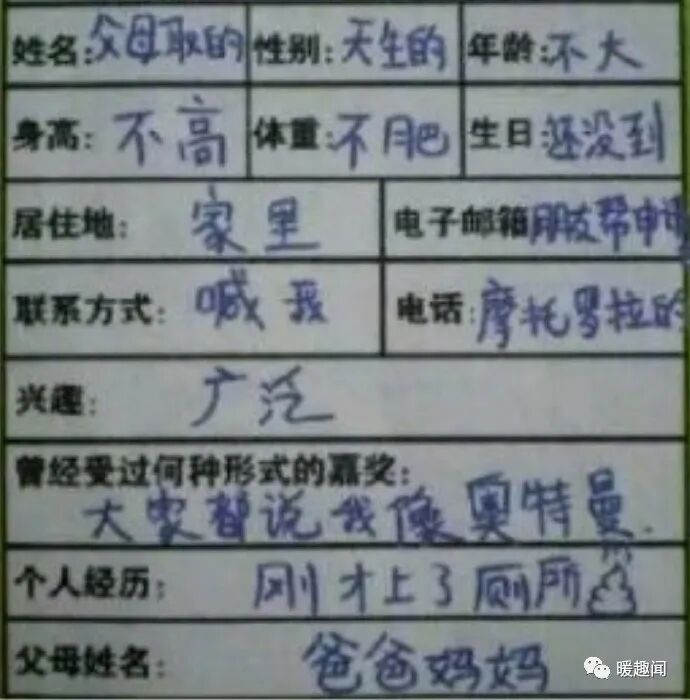 姓名:父母取的 性别:天生的 年龄:不大
身高:不高 体重:不肥 生日:还没到
居住地:家里 电子邮箱朋友帮申
联系方式:喊我 电话:摩托罗拉的
兴趣:广泛
曾经受过何种形式的嘉奖:
大家都说我像奥特曼.
个人经历:刚才上了厕所
父母姓名:爸爸妈妈
暖趣闻